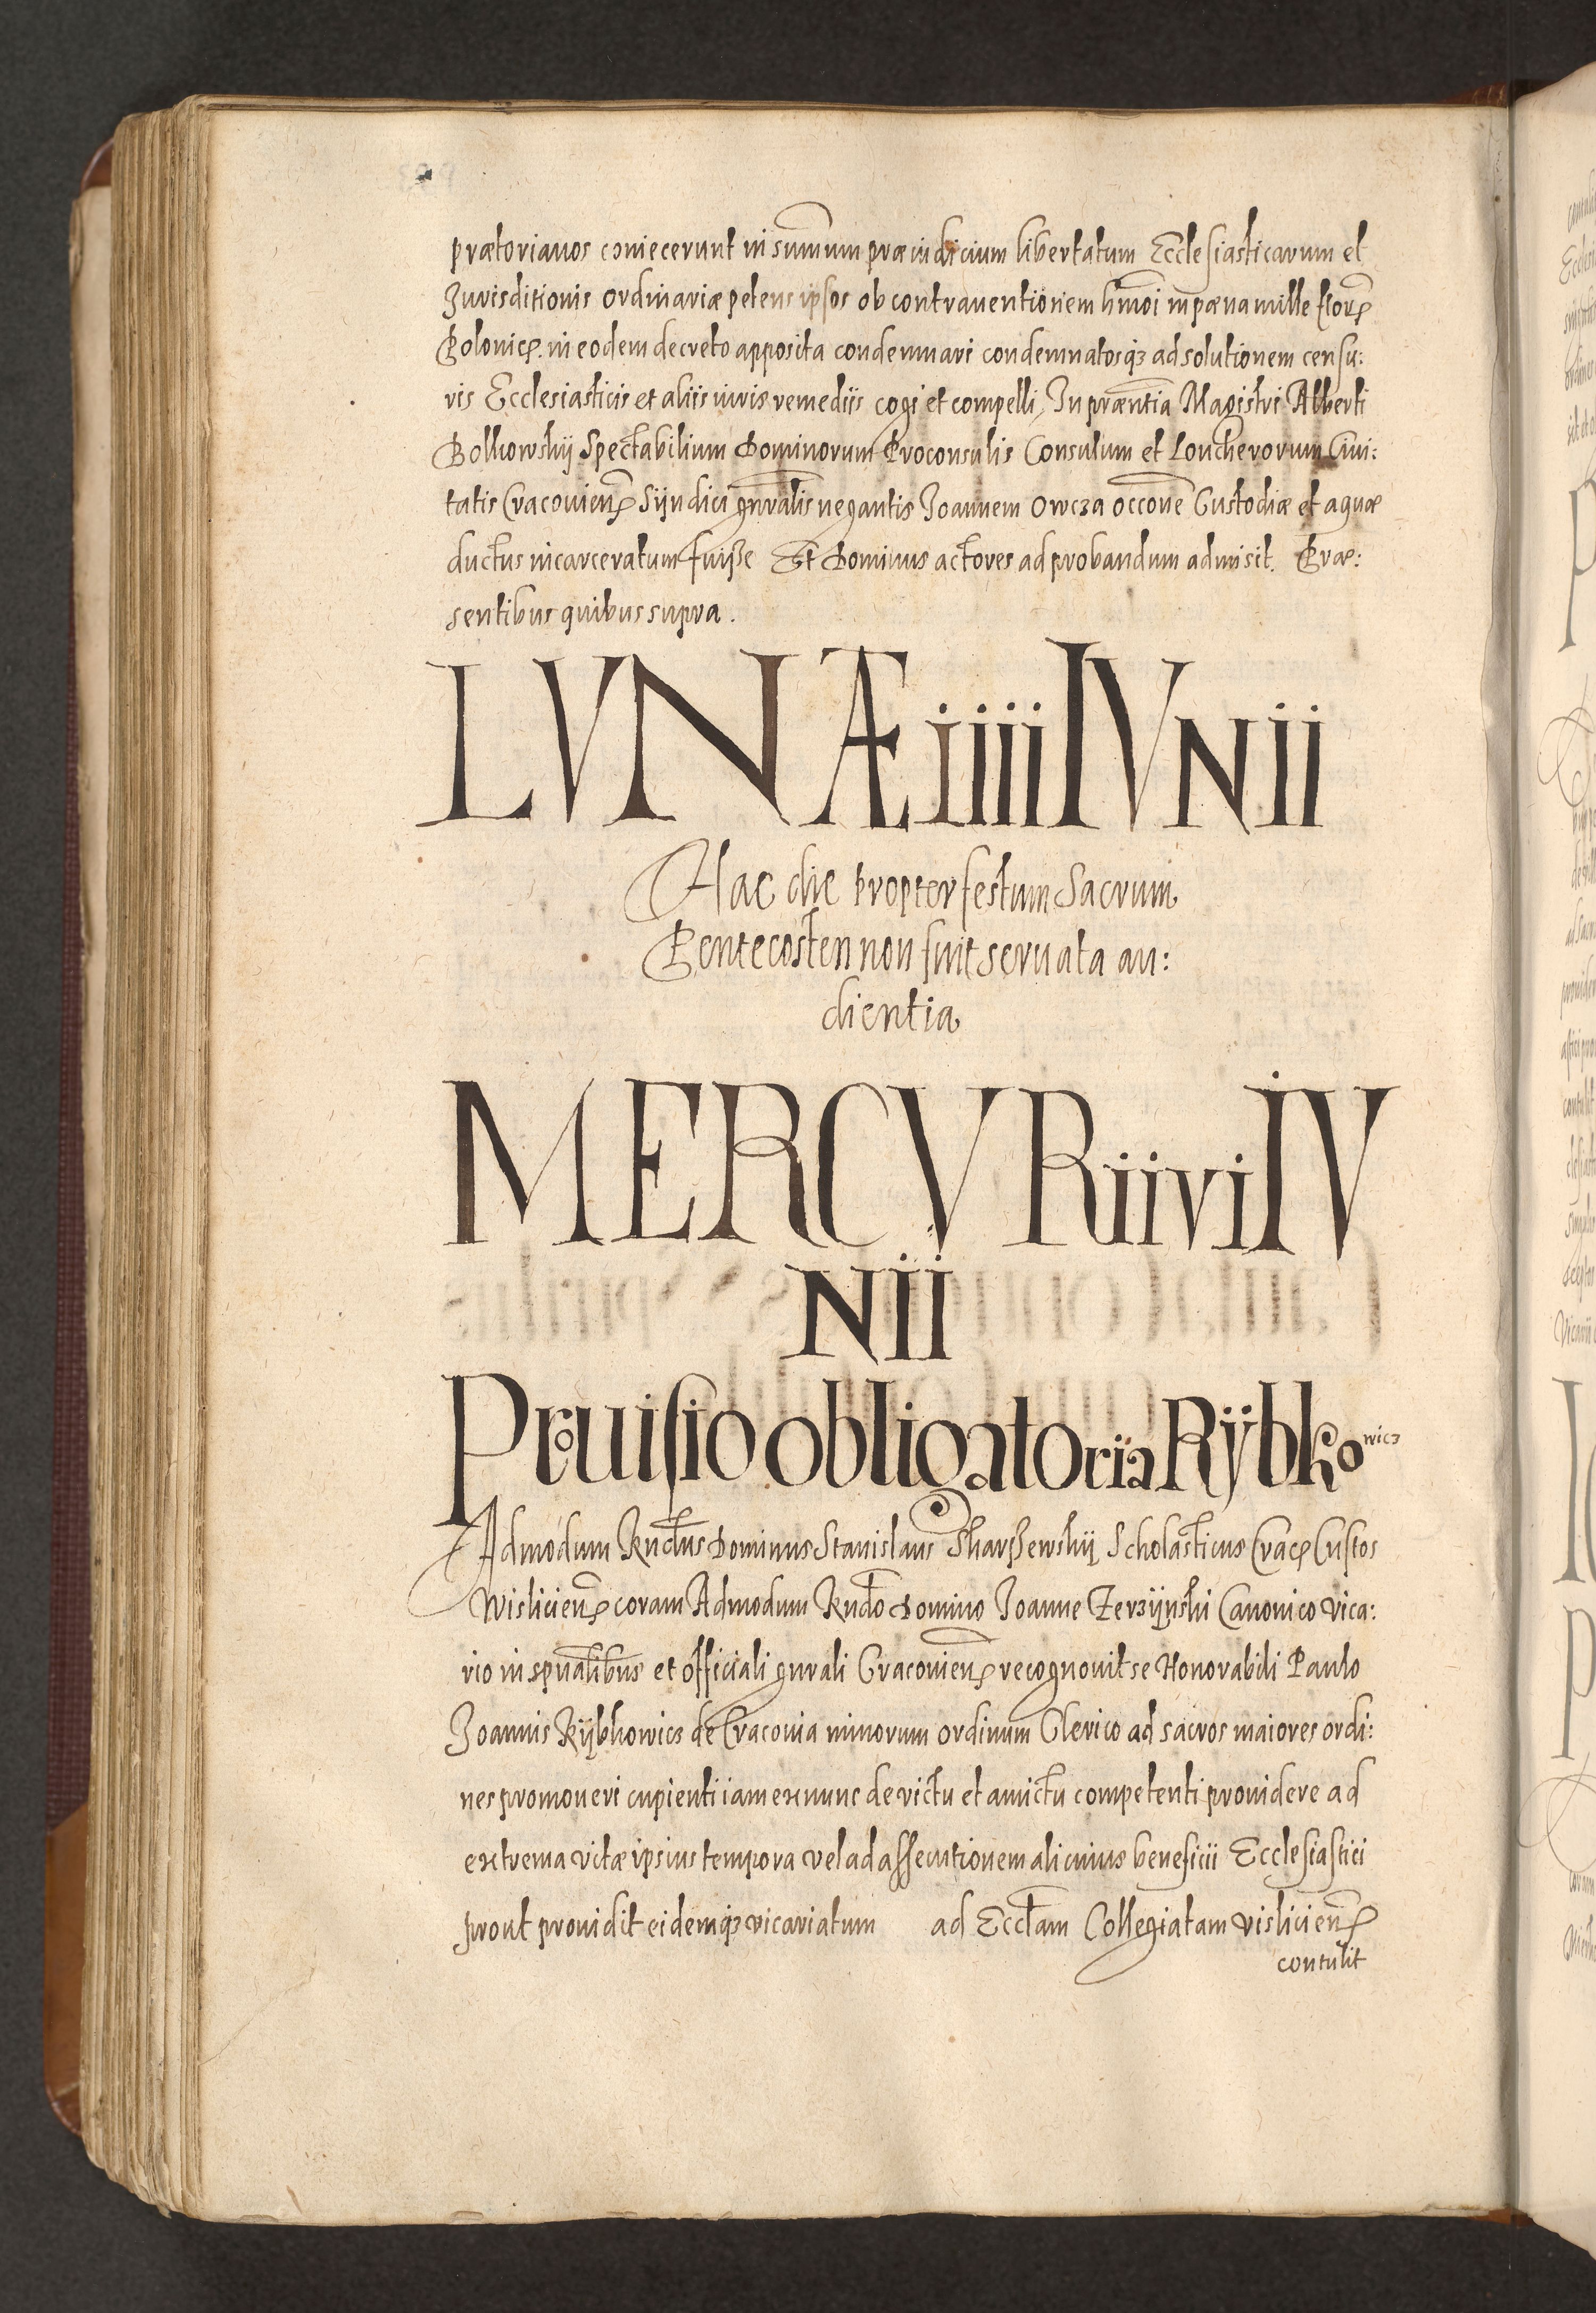 prætorianos coniecerunt in summum præiudicium libertatum Ecclesiasticarum et
Jurisditionis ordinariæ petens ipsos ob contrauentionem hmoi in pæna mille floreꝝ
Polonicꝝ. in eodem decreto apposita condemnari condemnatosqꝫ ad solutionem censu:
ris Ecclesiasticis et aliis iuris remediis cogi et compelli, In præntia Magistri Alberti
Bolkowskÿ Spectabilium Dominorum Proconsulis Consulum et Loncherorum Ciui:
tatis Cracouieñ Sÿndici gnralis negantis Joannem Owcza occone Custodiæ et aquæ
ductus incarceratum fuiße Et Dominus actores ad probandum admisit. Præ:
sentibus quibus supra.
LVNÆ iiii IVNii
Hac die propter festum Sacrum
Pentecosten non fuit seruata au:
dientia
MERCVRii vi IV
Nii
Prouisio obligatoria Rÿbkowicz
Admodum Rndus Dominus Stanislaus Skarßewskÿ Scholasticus Cracꝝ Custos
Wislicieñ coram Admodum Rndo Domino Joanne Zerzÿnski Canonico vica:
rio in spualibus et officiali gnrali Cracouieñ recognouit se Honorabili Paulo
Joannis Rÿbkowicz de Cracouia minorum ordinum Clerico ad sacros maiores ordi:
nes promoueri cupienti iam ex nunc de victu et amictu competenti prouidere ad
extrema vitæ ipsius tempora vel ad assecutionem alicuius beneficii Ecclesiastici
prout prouidit eidemqꝫ vicariatum ad Ecctam Collegiatam vislicieñ
contulit